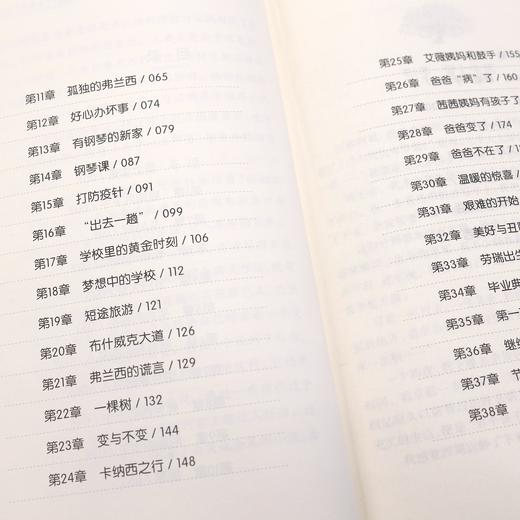 第11章 孤独的弗兰西 / 065
第12章 好心办坏事 / 074
第13章 有钢琴的新家 / 079
第14章 钢琴课 / 087
第15章 打防疫针 / 091
第16章 “出去一趟” / 099
第17章 学校里的黄金时刻 / 106
第18章 梦想中的学校 / 112
第19章 短途旅游 / 121
第20章 布什威克大道 / 126
第21章 弗兰西的谎言 / 129
第22章 一棵树 / 132
第23章 变与不变 / 144
第24章 卡纳西之行 / 148
第25章 艾薇姨妈和鼓手 / 155
第26章 爸爸“病”了 / 160
第27章 茜茜姨妈有孩子了
第28章 爸爸变了 / 174
第29章 爸爸不在了 /
第30章 温暖的惊喜
第31章 艰难的开始
第32章 美好与丑
第33章 劳瑞出
第34章 毕业典
第35章 第一
第36章 继
第37章 节
第38章